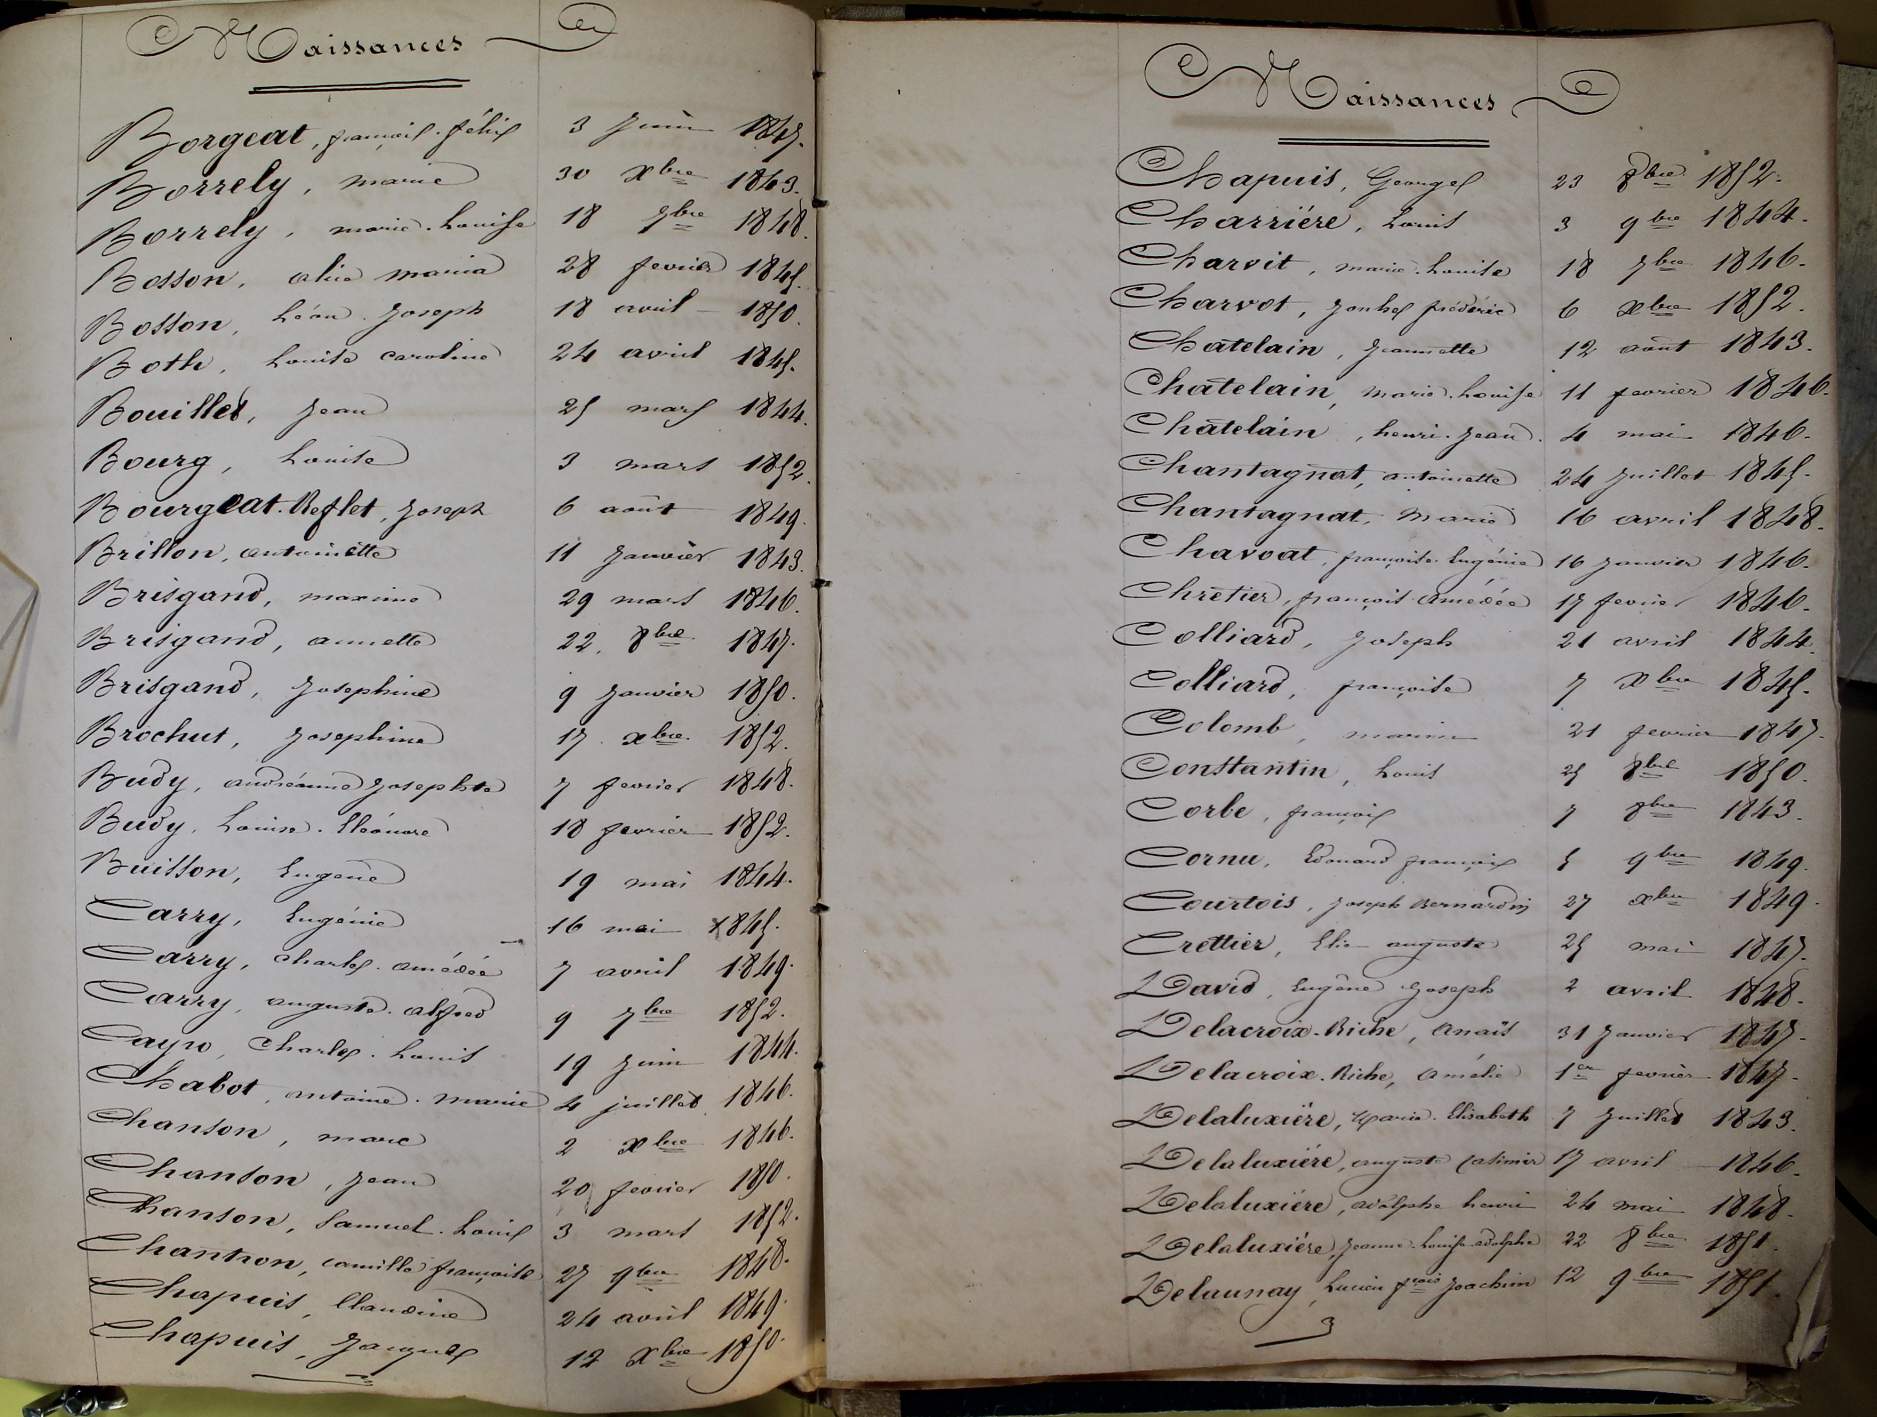 Naissances
Borgeat, françois. félix 3 Juin 1847.
Borrely, marie 30 Xbre 1843.
Borrely, marie. Louise 18 7bre 1848.
Bosson, alice maria 28 fevrier 1845.
Bosson, Léon. Joseph 18 avril 1850.
Both, Louise caroline 24 avril 1845.
Bouillet, Jean 25 mars 1844.
Bourg, Louise 3 mars 1852.
Bourgeat. Reflet, Joseph 6 août 1849.
Brillon, antoinette 11 Janvier 1843.
Brisgand, maxime 29 mars 1846.
Brisgand, annette 22. 8bre 1847.
Brisgand, Josephine 9 Janvier 1850.
Brochut, Josephine 17. Xbre. 1852.
Budy, andréanne Josephte 7 fevrier 1848.
Budy, Louise. Eléonore 18 fevrier 1852.
Buisson, Eugène 19 mai 1844.
Carry, Eugénie 16 mai 1845.
Carry, Charles. amédée 7 avril 1849.
Carry, auguste. alfred 9 7bre 1852.
Cayro, Charles. Louis 19 Juin 1844.
Chabot, antoine. marie 4 juillet 1846.
Chanson, marc 2 Xbre 1846.
Chanson, Jean 20 fevrier 1850.
Chanson, Samuel. Louis 3 mars 1852.
Chantron, camille françoise 27 9bre 1848.
Chapuis, Claudine 24 avril 1849.
Chapuis, Jacques 12 Xbre 1850.
Naissances
Chapuis, Georges 23 8bre 1852.
Charriére, Louis 3 9bre 1844.
Charvit, marie. Louise 18 7bre 1846.
Charvot, frédéric 6 Xbre 1852.
Chatelain, Jeannette 12 août 1843.
Chatelain, Marie. Louise 11 fevrier 1846.
Chatelain, henri. Jean. 4 mai 1846.
Chantagnat, antoinette 24 Juillet 1845.
Chantagnat, Marie 16 avril 1848.
Chavoat, françoise. Eugénie 16 Janvier 1846.
Chretier, françois amédée 17 fevrier 1846.
Colliard, Joseph 21 avril 1844.
Colliard, françoise 7 Xbre 1845.
Colomb, marie 21 fevrier 1847.
Constantin, Louis 25 8bre 1850.
Corbe, françois 7 8bre 1843.
Cornu, Edouard françois 5 9bre 1849.
Courtois, Joseph Bernardin 27 Xbre 1849.
Crettier, Elie auguste 25 mai 1847.
David, Eugène Joseph 2 avril 1848.
Delacroix. Riche, Anaïs 31 Janvier 1847.
Delacroix. Riche, Amélie 1er fevrier 1847.
Delaluxiére, Marie. Elisabeth 7 Juillet 1843.
Delaluxiére, auguste Casimir 17 avril 1846.
Delaluxiére, adolphe henri 24 mai 1848.
Delaluxiére, Jeanne. Louise adolphe 22 8bre 1851.
Delaunay, Lucien frois Joachim 12 9bre 1851.